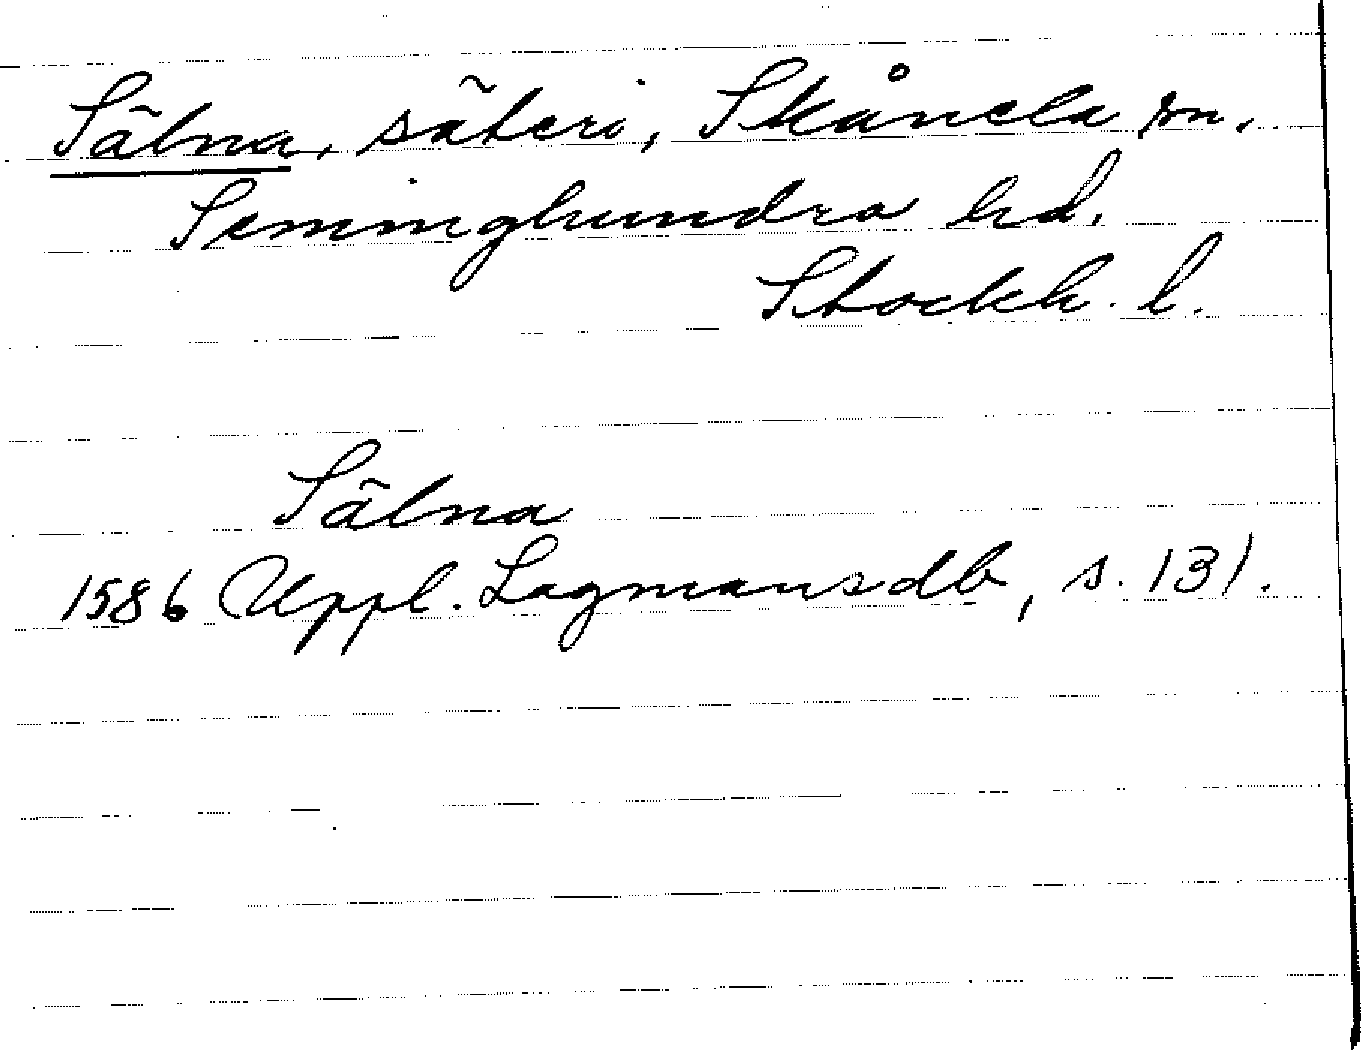 Sälna, säteri, Skånela sn.
Seminghundra hd.
Stockh. l.
Sälna
1586 Uppl. Lagmansdb, s. 131.